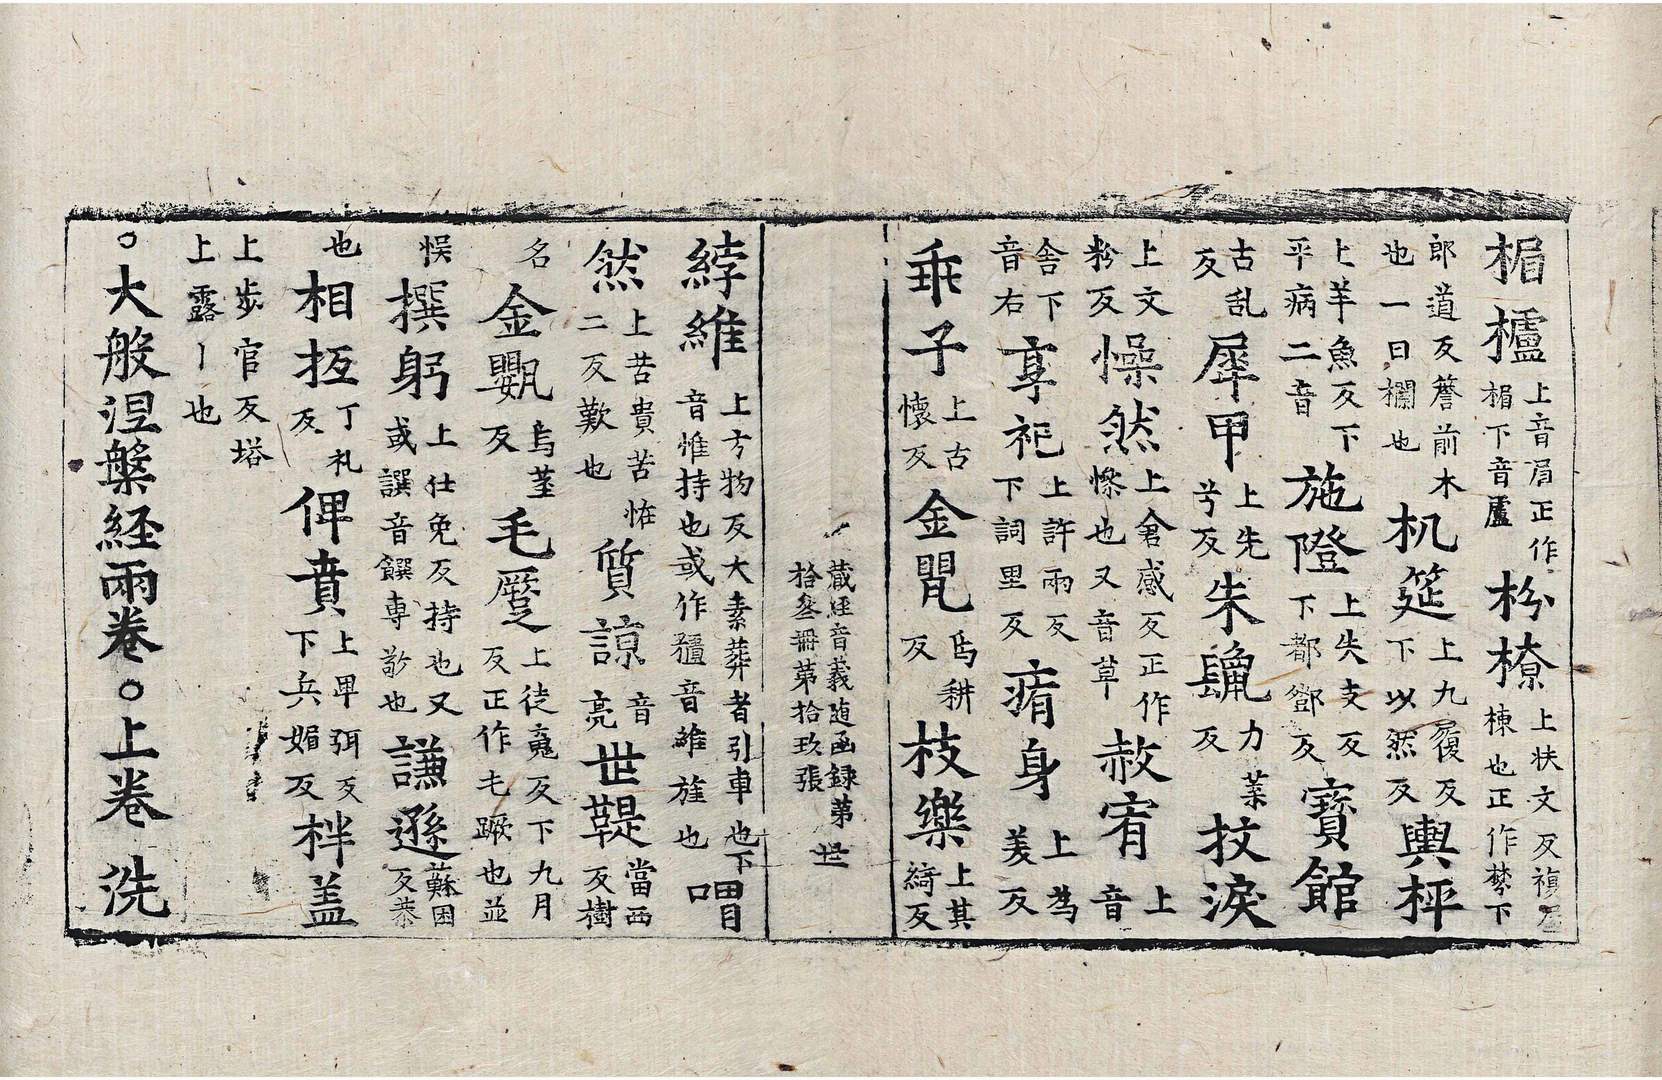 楣櫨上音眉正作楣下音盧枌橑上扶文反複屋棟也正作棼下
郎道反簷前木也一曰欄也机筵上九履反下以然反輿枰
上羊魚反下平病二音施隥上失支反下都鄧反寶館
古乱反犀甲上先兮反朱鬣力葉反抆淚
上文粉反懆然上倉感反正作慘也又音草赦宥上音
舍下音右享祀上許兩反下詞里反痏身上為美反
乖子上古懷反金甖烏耕反枝樂上其綺反
蔵経音義随函録第 世
拾叁冊第拾玖張
綍維上方物反大素葬者引車也下音惟持也或作音維旌也喟
然上苦貴苦恠二反歎也質諒音亮世鞮當西反樹
名金甖烏莖反毛上徒反下九月反正作毛蹶也並
悮撰躬上仕免反持也又或譔音饌専教也謙遜蘇困反恭
也相抵丁礼反俾賁上卑弭反下兵媚反柈盖
上步官反塔上露丨也
○大般涅槃経兩卷○上卷 洗